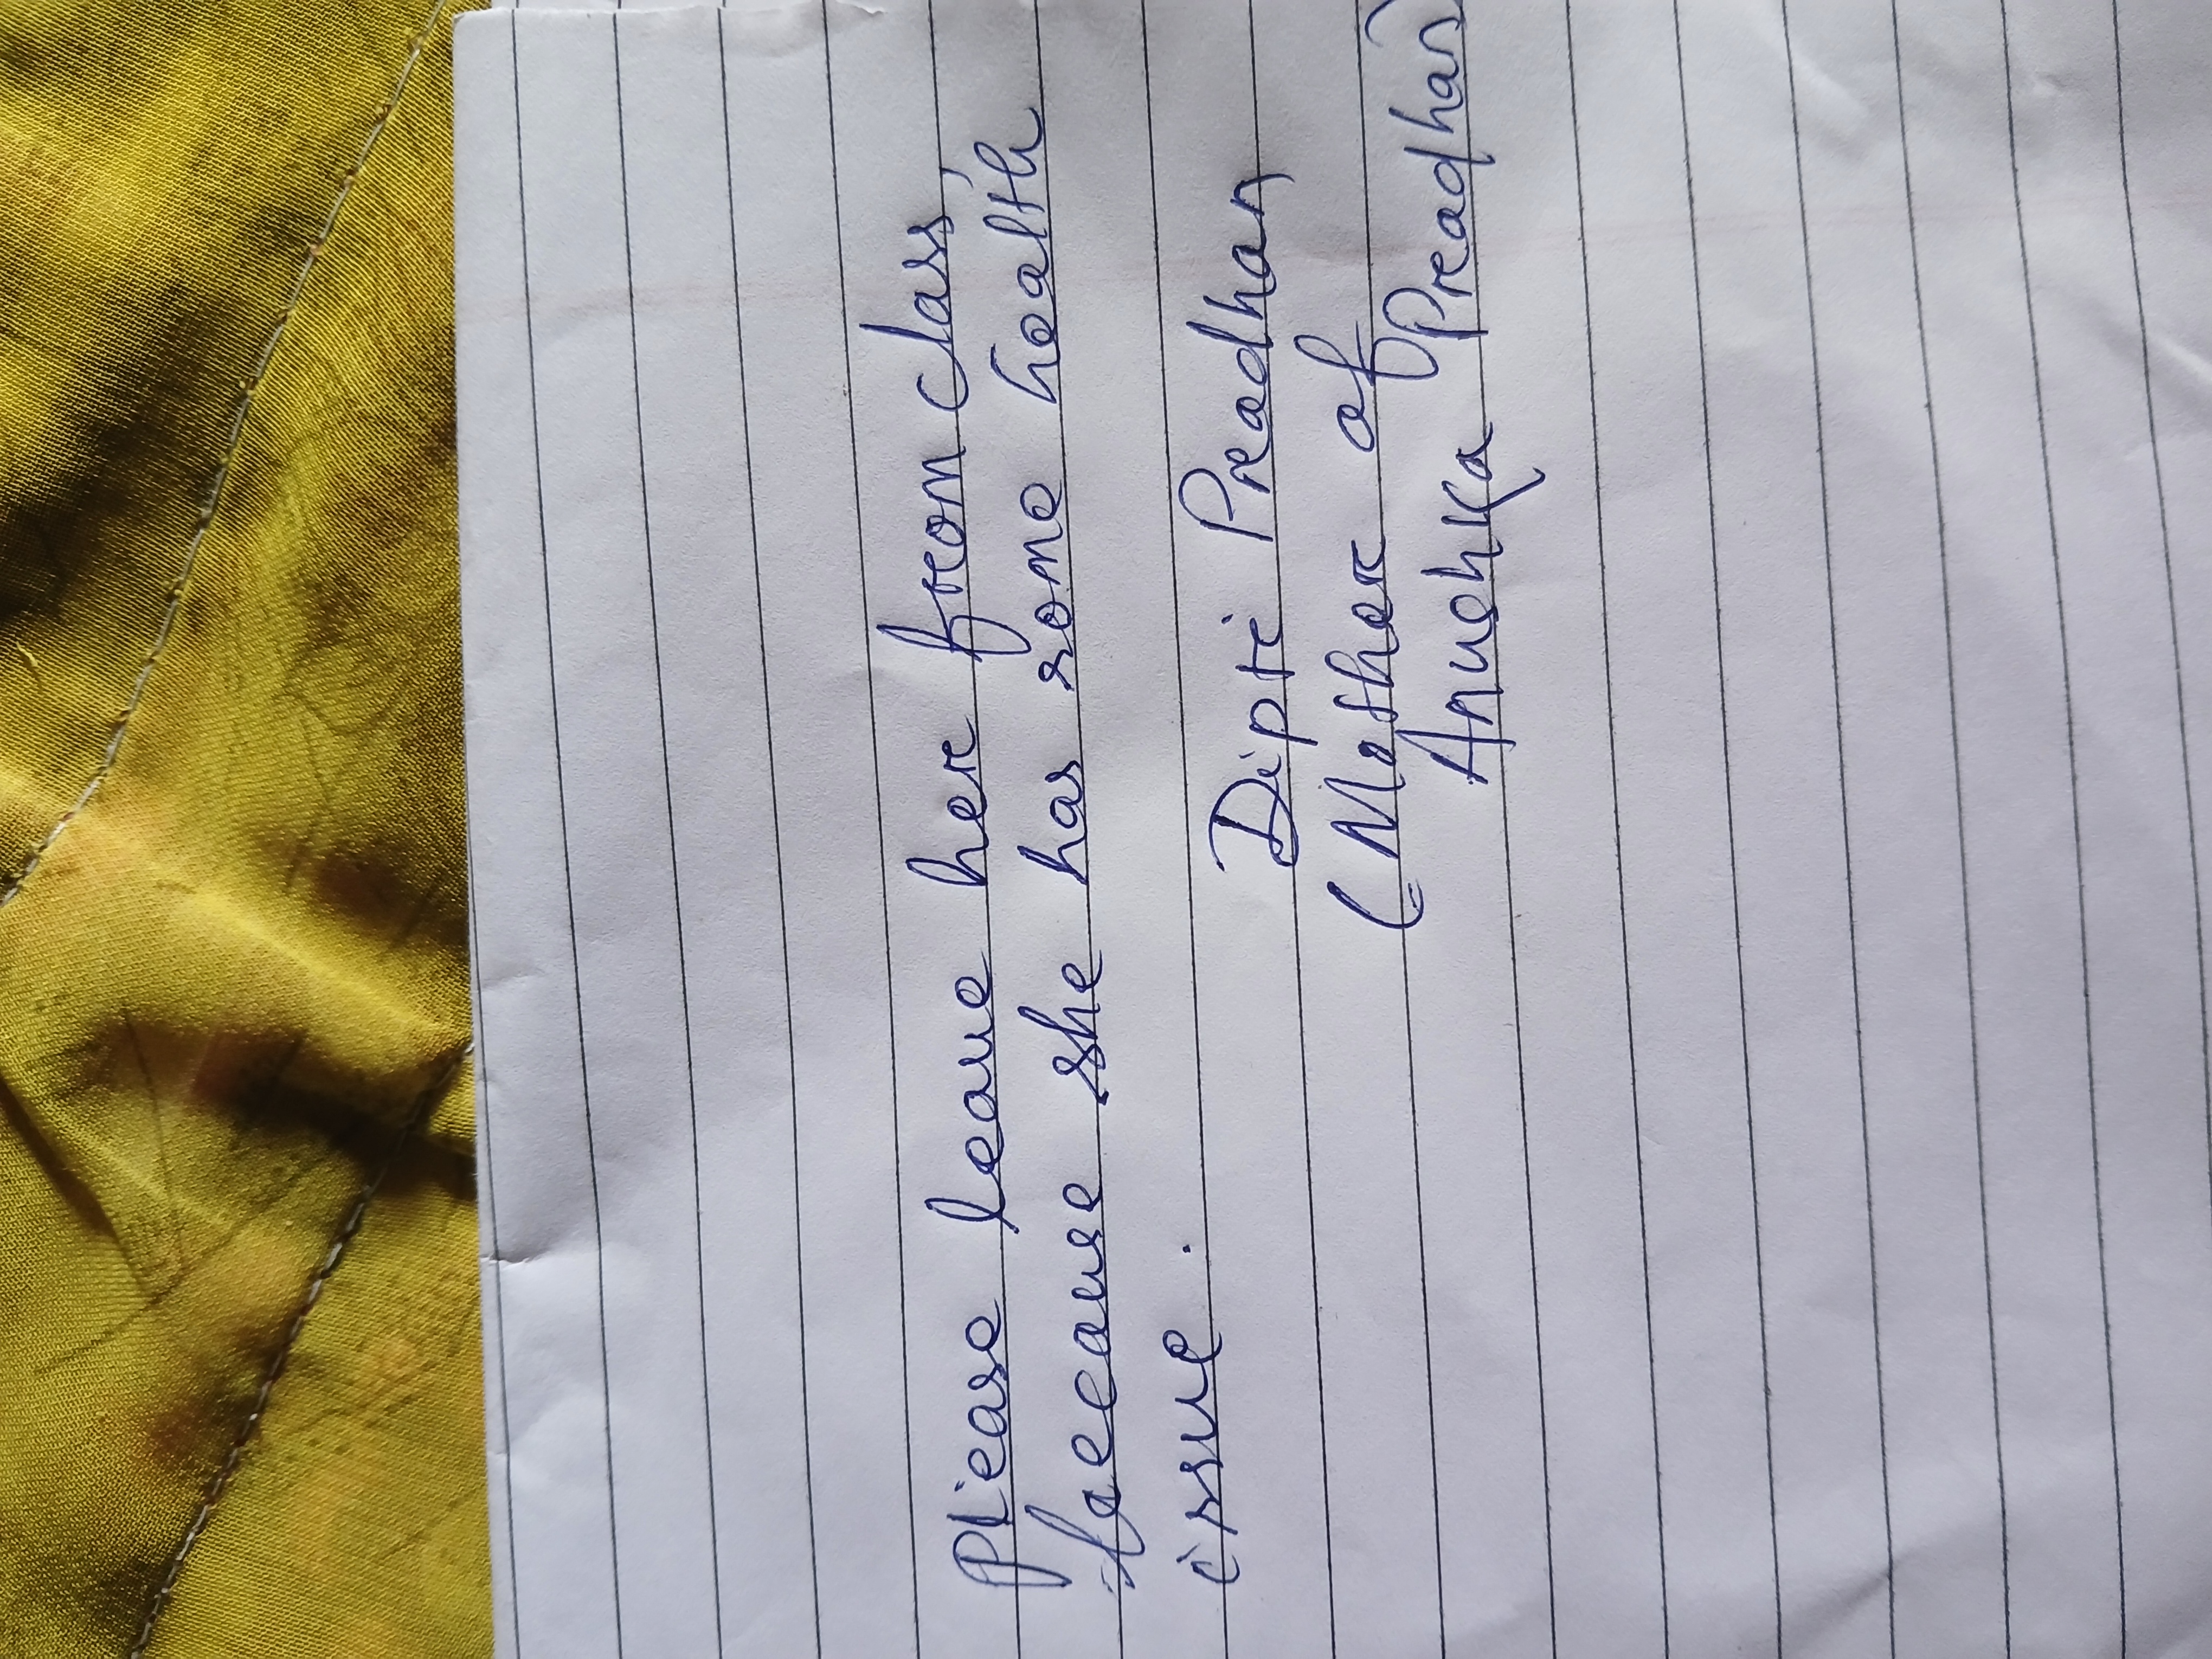 Please leave her from class,
because she has some health
issue.
Dipti Pradhan
(Mother of
Anushka Pradhan)